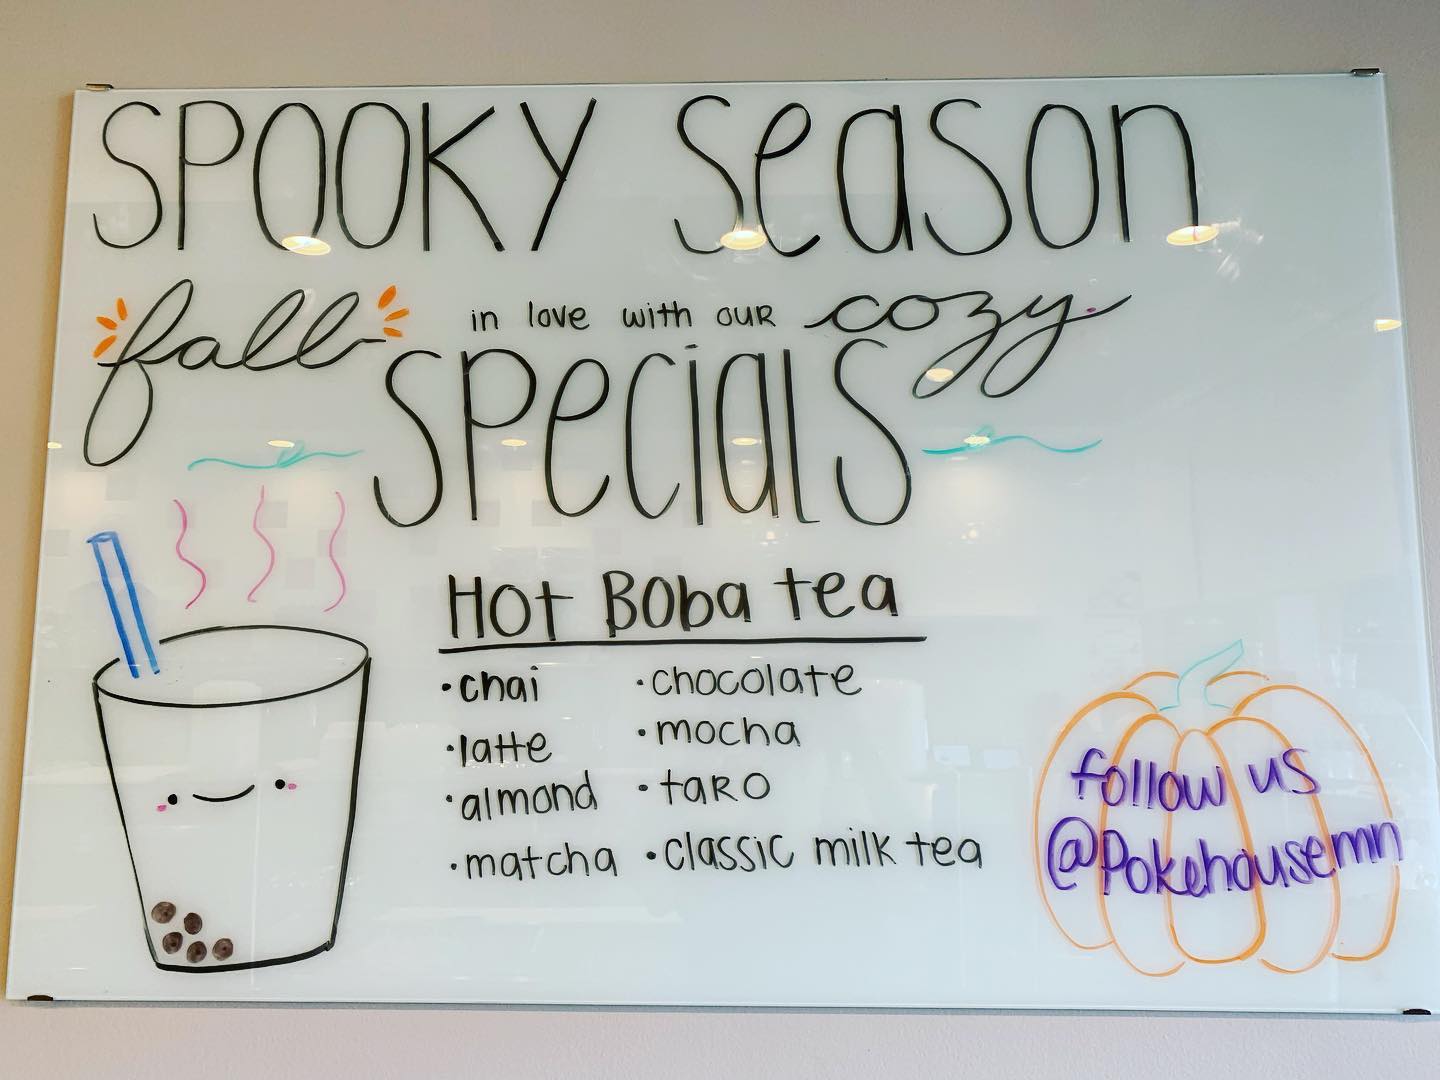 SPOOKY Season
fall in love with our cozy
Specials
Hot Boba tea
•chai •chocolate
•latte •mocha
•almond •taro
•matcha •classic milk tea
follow us
@Pokehousemn